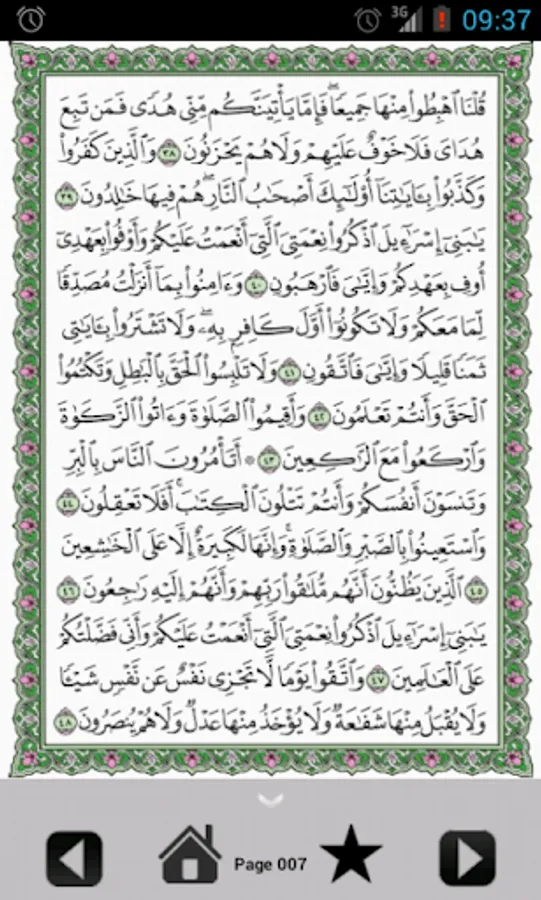 3G 09:37
قُلْنَا ٱهْبِطُوا۟ مِنْهَا جَمِيعًا ۖ فَإِمَّا يَأْتِيَنَّكُم مِّنِّى هُدًى فَمَن تَبِعَ
هُدَاىَ فَلَا خَوْفٌ عَلَيْهِمْ وَلَا هُمْ يَحْزَنُونَ ٣٨ وَٱلَّذِينَ كَفَرُوا۟
وَكَذَّبُوا۟ بِـَٔايَـٰتِنَآ أُو۟لَـٰٓئِكَ أَصْحَـٰبُ ٱلنَّارِ ۖ هُمْ فِيهَا خَـٰلِدُونَ ٣٩
يَـٰبَنِىٓ إِسْرَٰٓءِيلَ ٱذْكُرُوا۟ نِعْمَتِىَ ٱلَّتِىٓ أَنْعَمْتُ عَلَيْكُمْ وَأَوْفُوا۟ بِعَهْدِىٓ
أُوفِ بِعَهْدِكُمْ وَإِيَّـٰىَ فَٱرْهَبُونِ ٤٠ وَءَامِنُوا۟ بِمَآ أَنزَلْتُ مُصَدِّقًا
لِّمَا مَعَكُمْ وَلَا تَكُونُوٓا۟ أَوَّلَ كَافِرٍۭ بِهِۦ ۖ وَلَا تَشْتَرُوا۟ بِـَٔايَـٰتِى
ثَمَنًا قَلِيلًا وَإِيَّـٰىَ فَٱتَّقُونِ ٤١ وَلَا تَلْبِسُوا۟ ٱلْحَقَّ بِٱلْبَـٰطِلِ وَتَكْتُمُوا۟
ٱلْحَقَّ وَأَنتُمْ تَعْلَمُونَ ٤٢ وَأَقِيمُوا۟ ٱلصَّلَوٰةَ وَءَاتُوا۟ ٱلزَّكَوٰةَ
وَٱرْكَعُوا۟ مَعَ ٱلرَّٰكِعِينَ ٤٣ ۞ أَتَأْمُرُونَ ٱلنَّاسَ بِٱلْبِرِّ
وَتَنسَوْنَ أَنفُسَكُمْ وَأَنتُمْ تَتْلُونَ ٱلْكِتَـٰبَ ۚ أَفَلَا تَعْقِلُونَ ٤٤
وَٱسْتَعِينُوا۟ بِٱلصَّبْرِ وَٱلصَّلَوٰةِ ۚ وَإِنَّهَا لَكَبِيرَةٌ إِلَّا عَلَى ٱلْخَـٰشِعِينَ
٤٥ ٱلَّذِينَ يَظُنُّونَ أَنَّهُم مُّلَـٰقُوا۟ رَبِّهِمْ وَأَنَّهُمْ إِلَيْهِ رَٰجِعُونَ ٤٦
يَـٰبَنِىٓ إِسْرَٰٓءِيلَ ٱذْكُرُوا۟ نِعْمَتِىَ ٱلَّتِىٓ أَنْعَمْتُ عَلَيْكُمْ وَأَنِّى فَضَّلْتُكُمْ
عَلَى ٱلْعَـٰلَمِينَ ٤٧ وَٱتَّقُوا۟ يَوْمًا لَّا تَجْزِى نَفْسٌ عَن نَّفْسٍ شَيْـًٔا
وَلَا يُقْبَلُ مِنْهَا شَفَـٰعَةٌ وَلَا يُؤْخَذُ مِنْهَا عَدْلٌ وَلَا هُمْ يُنصَرُونَ ٤٨
Page 007